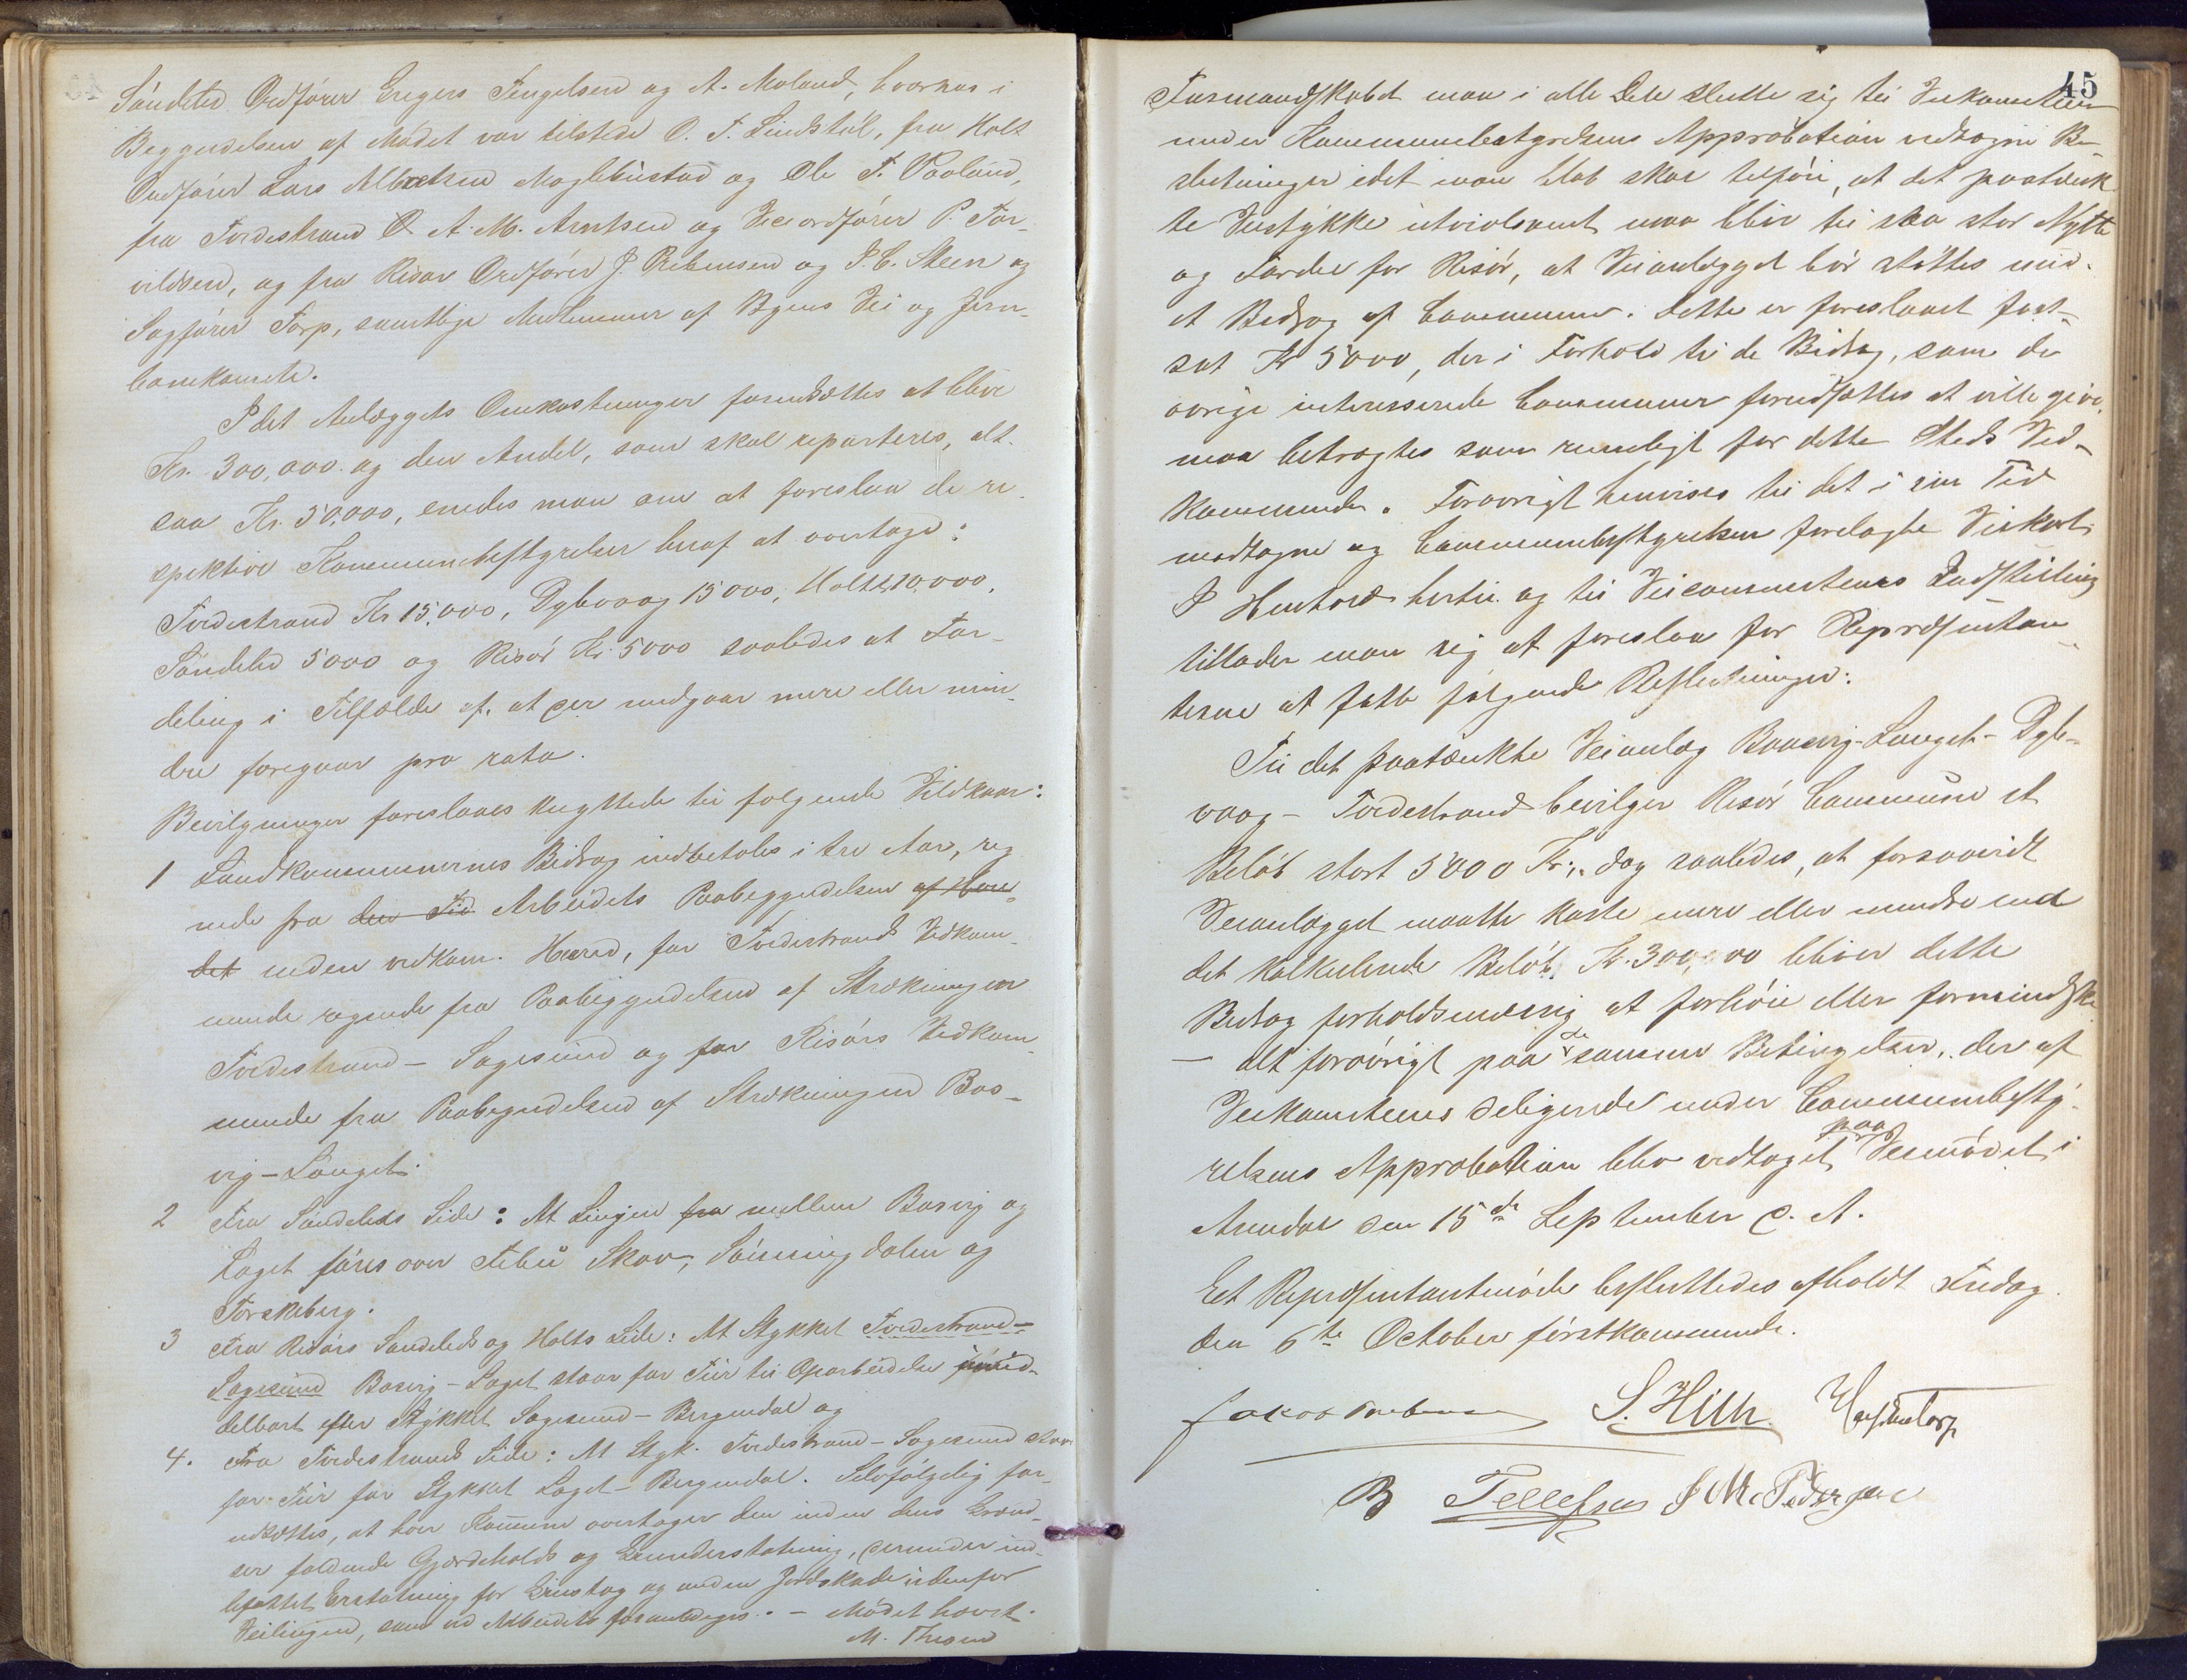 Søndeled Ordfører Gregers Tengelsen og A. Moland, hvorhos i
Begyndelsen af Mødet var tilstede O. T. Lindstøl, fra Holt
Ordfører Lars Albretsen Moglebustad og Ole T. Røoland,
fra Tvedestrand O. A. M. Arntsen og Viceordfører P. Tor-
vildsen, og fra Risør Ordfører J. Rebensen og J. C. Steen og
Sagfører Torp, samtlige Medlemmer af Byens Vei og Jern-
banekomite.
Idet Anlæggets Omkostninger forudsættes at blive
Kr. 300,000 og den Andel, som skal reparteres, alt-
saa Kr. 50,000, enedes man om at foreslaa de re-
spektive Kommunebestyrelser heraf at overtage:
Tvedestrand Kr 15,000, Dybvaag 15000, Holt 10,000,
Søndeled 5000 og Risør Kr. 5000 saaledes at For-
deling i Tilfælde af, at der medgaar mere eller min-
dre foregaar pro rata.
Bevilgninger foreslaaes knyttede til følgende Vilkaar:
1 Landkommunernes Bidrag indbetales i tre Aar, reg-
nede fra den Tid Arbeidets Paabegyndelsen af
det inden vedkom. Herred, for Tvedestrands Vedkom-
mende regnede fra Paabegyndelsen af Strækningen
Tvedestrand - Sagesund og for Risørs Vedkom-
mende fra Paabegyndelsen af Strækningen Bos-
vig - Langet.
2 Fra Søndeleds Side: At Linjen fra mellem Bosvig og
Laget føres over Febu Skov, Sønningdalen og
Torskeberg.
3 Fra Risørs Søndeleds og Holts Side: At Stykket Tvedestrand -
Sagesund Bosvig - Laget staar for Tur til Oparbeidelse umid-
delbart efter Stykket Sagesund - Bergendal og
4. Fra Tvedestrands Side: At Styk. Tvedestrand - Sagesund staar
for Tur før Stykket Laget - Bergendal. Selvfølgelig for-
udsættes, at hver Kommune overtager den inden dens Grænd-
ser faldende Gjærdeholds og Grunderstatning, derunder ind-
befattet Erstatning for Grustag og anden Jordskade udenfor
Veilinjen, som ved Arbeidets foranlediges. - Mødet hævet.
M. Thesen
45
Formandskabet maa i alle Dele slutte sig til Veikomiteens
under Kommunebestyrelsens Approbation vedtagne Be-
slutninger idet man blot skal tilføie, at det paatænk-
te Veistykke utvivlsomt maa blive til saa stor Nytte
og Fordel for Risør, at Veianlægget bør støttes med
et Bidrag af Communen. Dette er foreslaaet fast-
sat Kr 5000, der i Forhold til de Bidrag, som de
øvrige interesserede Communer forudsættes at ville give,
maa betragtes som rimeligt for dette Steds Ved-
kommende. Forøvrigt henvises til det i sin Tid
modtagne og Communebestyrelsen forelagte Veikart.
I Henhold hertil og til Veicommiteens Indstilling
tillader man sig at foreslaa for Repræsentan-
terne at fatte følgende Beslutninger:
Til det paatænkte Veianlæg Bosvig - Langet - Dyb-
vaag - Tvedestrand bevilger Risør Commune et
Beløb stort 5000 Kr., dog saaledes, at forsaavidt
Veianlægget maatte koste mere eller mindre end
det kalkulerede Beløb, Kr. 300,000 bliver dette
Bidrag forholdsmæssig at forhøie eller formindske
- alt forøvrigt paa de samme Betingelser, der af
Veikomiteens Delegerede under Communebesty-
relsens Approbation blev vedtaget paa Veimødet i
Arendal den 15de September d. A.
Et Repræsentantmøde besluttedes afholdt Fredag
den 6te October førstkommende.
Jakob S. Hille
B Tellefsen J M Pedersen